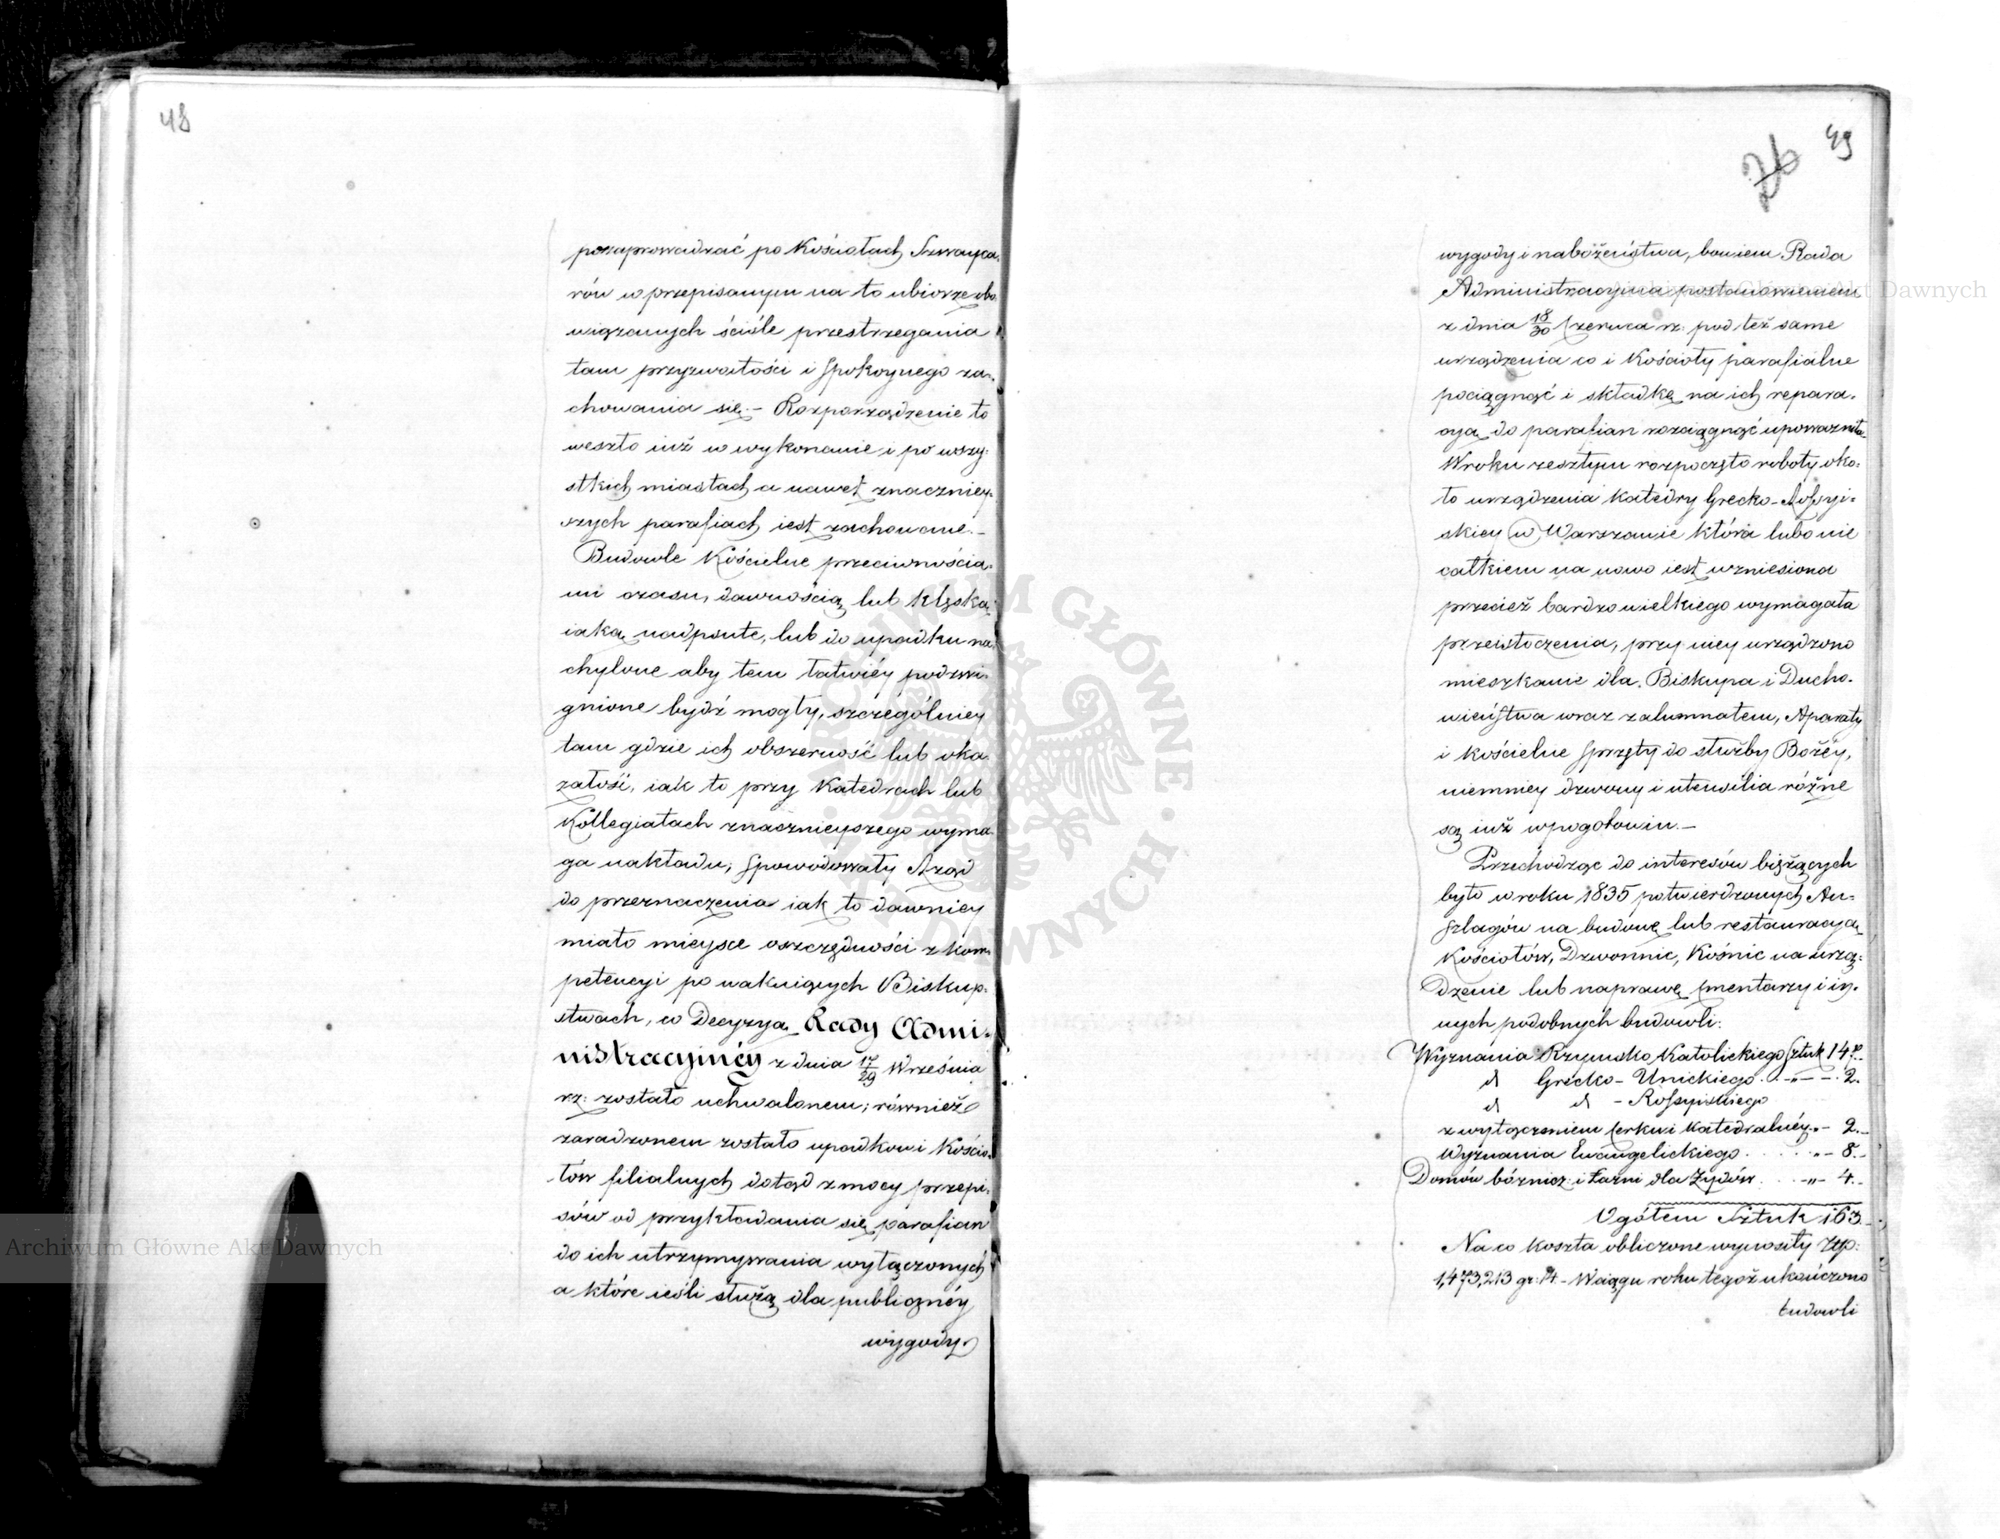 48
pozaprowadzać po Kościołach Szwayca-
rów w przepisanym na to ubiorze obo
wiązanych ściśle przestrzegania
tam przyzwoitości i spokoynego za-
chowania się. – Rozporządzenie to
weszło iuż w wykonanie i po wszy-
stkich miastach a nawet znaczniey-
szych parafiach iest zachowane. –
Budowle Kościelne przeciwnościa-
mi czasu, dawnością lub klęską
iaką nadpsute, lub do upadku na-
chylone aby tem łatwiéy podzwi-
gnione bydź mogły, szczególniey
tam gdzie ich obszerność lub oka-
załość, iak to przy Katedrach lub
Kollegiatach znacznieyszego wyma-
ga nakładu, spowodowały Rząd
do przeznaczenia iak to dawniey
miało mieysce oszczędności z kom-
petencyi po wakuiących Biskup-
stwach, co Decyzyą Rady Admi-
nistracyinéy z dnia 17/29 Września
rz: zostało uchwalonem; również
zaradzonem zostało upadkowi Kościo-
łów filialnych dotąd z mocy przepi-
sów od przykładania się parafian
do ich utrzymywania wyłączonych
a które ieśli służą dla publicznéy
wygody
49
26
wygody i nabożeństwa, bowiem Rada
Administracyina postanowieniem
z dnia 18/30 Czerwca rz: pod też same
urządzenia co i Kościoły parafialne
pociągnąć i składkę na ich repara-
cyą do parafian rozciągnąć upoważniła.
W roku zeszłym rozpoczęto roboty oko-
ło urządzenia Katedry Grecko-Rossyi-
skiey w Warszawie która lubo nie
całkiem na nowo iest wzniesiona
przecież bardzo wielkiego wymagała
przeistoczenia, przy niey urządzono
mieszkanie dla Biskupa i Ducho-
wieństwa wraz z alumnatem, Aparaty
i kościelne sprzęty do służby Bożéy,
niemniey dzwony i utensilia różne
są iuż w pogotowiu. –
Przechodząc do interesów bieżących
było w roku 1835 potwierdzonych An-
szlagów na budowę lub restauracyą
Kościołów, Dzwonnic, Kośnic na urzą-
dzenie lub naprawę Cmentarzy i in-
nych podobnych budowli:
Wyznania Rzymsko Katolickiego Sztuk 147.
d Grecko-Unickiego . . -„- – . 2.
d d – Rossyiskiego
z wyłączeniem Cerkwi Katedralnéy. „ – 2.
Wyznania Ewangelickiego . . . . . „ – 8. –
Domów bóżnicz: i Łaźni dla Żydów . . . -„- 4. –
Ogółem Sztuk 163.
Na co koszta obliczone wynosiły Złp:
1,473,213 gr: 14. – W ciągu roku tegoż ukończono
budowli
Archiwum Główne Akt Dawnych
Archiwum Główne Akt Dawnych
ARCHIWUM GŁÓWNE AKT DAWNYCH